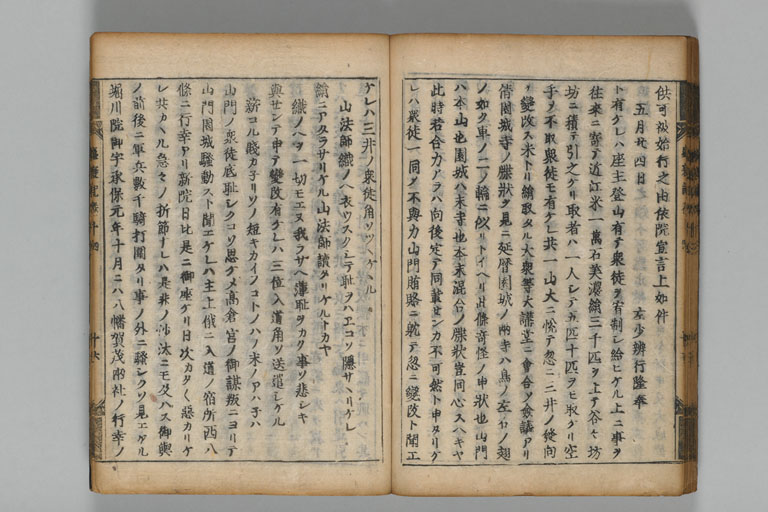 供可被始行之由依院宣言上如件
五月廿四日 左少辨行隆奉
ト有ケレハ座主登山有テ衆徒ヲ宥制シ給ヒケル上ニ事ヲ
往来ニ寄テ近江米一萬石美濃絹三千匹ヲ上テ谷々坊
坊ニ積テ引之ケリ取者ハ一人シテ五匹十匹ヲモ取ケリ空
手ヲ不取衆徒モ有ケレ共一山大ニ悦テ忽ニ三井ノ從向
ヲ變改ス米トリ絹取タル大衆等大講堂ニ會合ソ僉議アリ
倩園城寺ノ牒状ヲ見ニ延暦園城ノ両寺ハ鳥ノ左右ノ翅
ノ如ク車ノ二ノ輪ニ似リトイヘリ此條奇怪ノ申状也山門
ハ本山也園城ハ末寺也本末混合ノ牒状豈同心スヘキヤ
此時若合力アラハ向後定テ同載センカ不可然ト申タリケ
レハ衆徒一同ソ不與力山門賄賂ニ耽テ忽ニ變改ト聞エ
ケレハ三井ノ衆徒角ソツヽケケル
山法師織ノヘ衣ウスクシテ恥ヲハエコソ隠サヘリケレ
絹ニアタラサリケル山法師讀タリケルトカヤ
織ノヘヲ一切モエヌ我ラサヘ薄恥ヲカク事ソ悲シキ
與セント申テ變改有ケレハ三位入道角ソ送遣シケル
薪コル賤カ子リソノ短キカイフコトノハノ末ノアハ子ハ
山門ノ衆徒底恥シクコソ思ケメ高倉宮ノ御謀叛ニヨリテ
山門園城騒動スト聞エケレハ主上俄ニ入道ノ宿所西八
條ニ行幸アリ新院日比是ニ御座ケリ日次カタく惡カリケ
レ共カヽル急々ノ折節ナレハ是非ノ沙汰ニモ及ハス御輿
ノ前後ニ軍兵數千騎打圍タリ事ノ外ニ騒シクソ見エケル
堀川院御宇承保元年十月ニハ八幡賀茂両社ノ行幸ノ